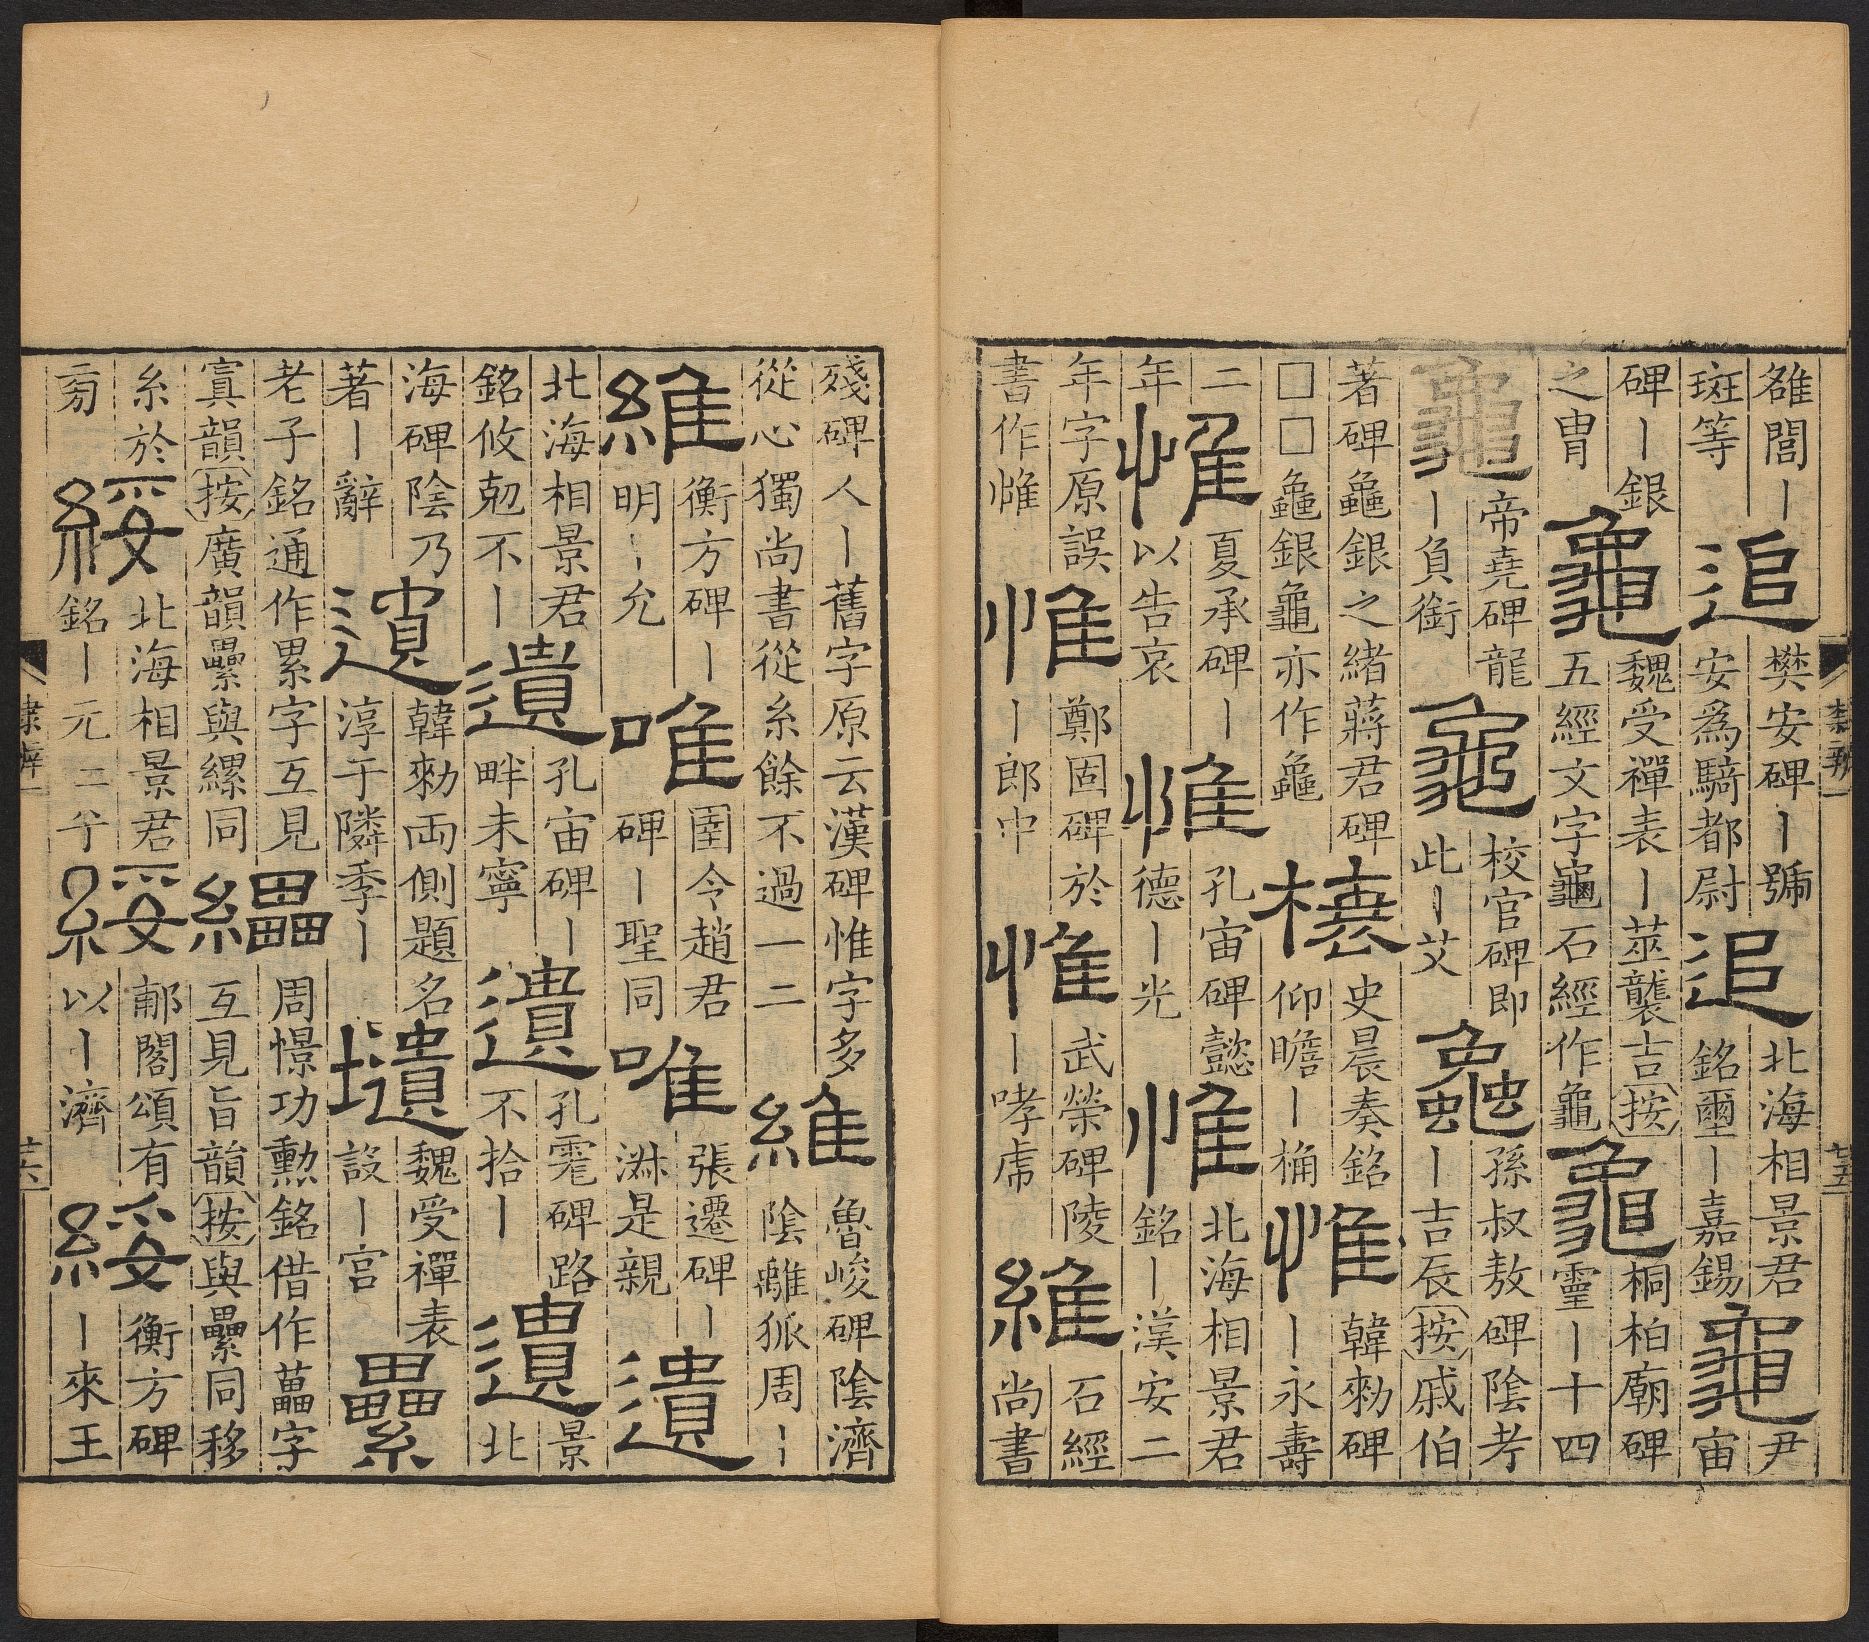 雒閭〡
斑等
追
樊安碑〡號
安爲騎都尉
追
北海相景君
銘璽〡嘉錫
龜
尹
宙
碑〡銀
之胄
龜
魏受禪表〡莁襲吉按
五經文字龜石經作龜
龜
桐柏廟碑
靈〡十四
龜
帝堯碑龍
〡負銜
龜
校官碑即
此〡艾
龜
孫叔敖碑陰考
〡吉辰按戚伯
著碑龜銀之緒蔣君碑
□□龜銀龜亦作龜
榱
史晨奏銘
仰瞻〡桷
惟
韓勑碑
〡永壽
二
年
惟
夏承碑〡
以告哀
惟
孔宙碑懿
德〡光
惟
北海相景君
銘〡漢安二
年字原誤
書作惟
惟
鄭固碑於
〡郎中
惟
武榮碑陵
〡哮虎
維
石經
尚書
隸辨一
廿五
殘碑人〡舊字原云漢碑惟字多
從心獨尚書從糸餘不過一二
維
魯峻碑陰濟
陰離狐周〡
維
衡方碑〡
明〡允
唯
圉令趙君
碑〡聖同
唯
張遷碑〡
淋是親
遺
北海相景君
銘攸剋不〡
遺
孔宙碑〡
畔未寧
遺
孔碑路
不拾〡
遺
景
北
海碑陰乃
著〡辭
遺
韓勑両側題名
淳于隣季〡
壝
魏受禪表
設〡宮
纍
老子銘通作累字互見
寘韻按廣韻纍與縲同
纝
周憬功勳銘借作藟字
互見旨韻按與纍同移
糸於
旁
綏
北海相景君
銘〡元二兮
綏
郙閣頌有
以〡濟
綏
衡方碑
〡來王
隸辨一
廿六